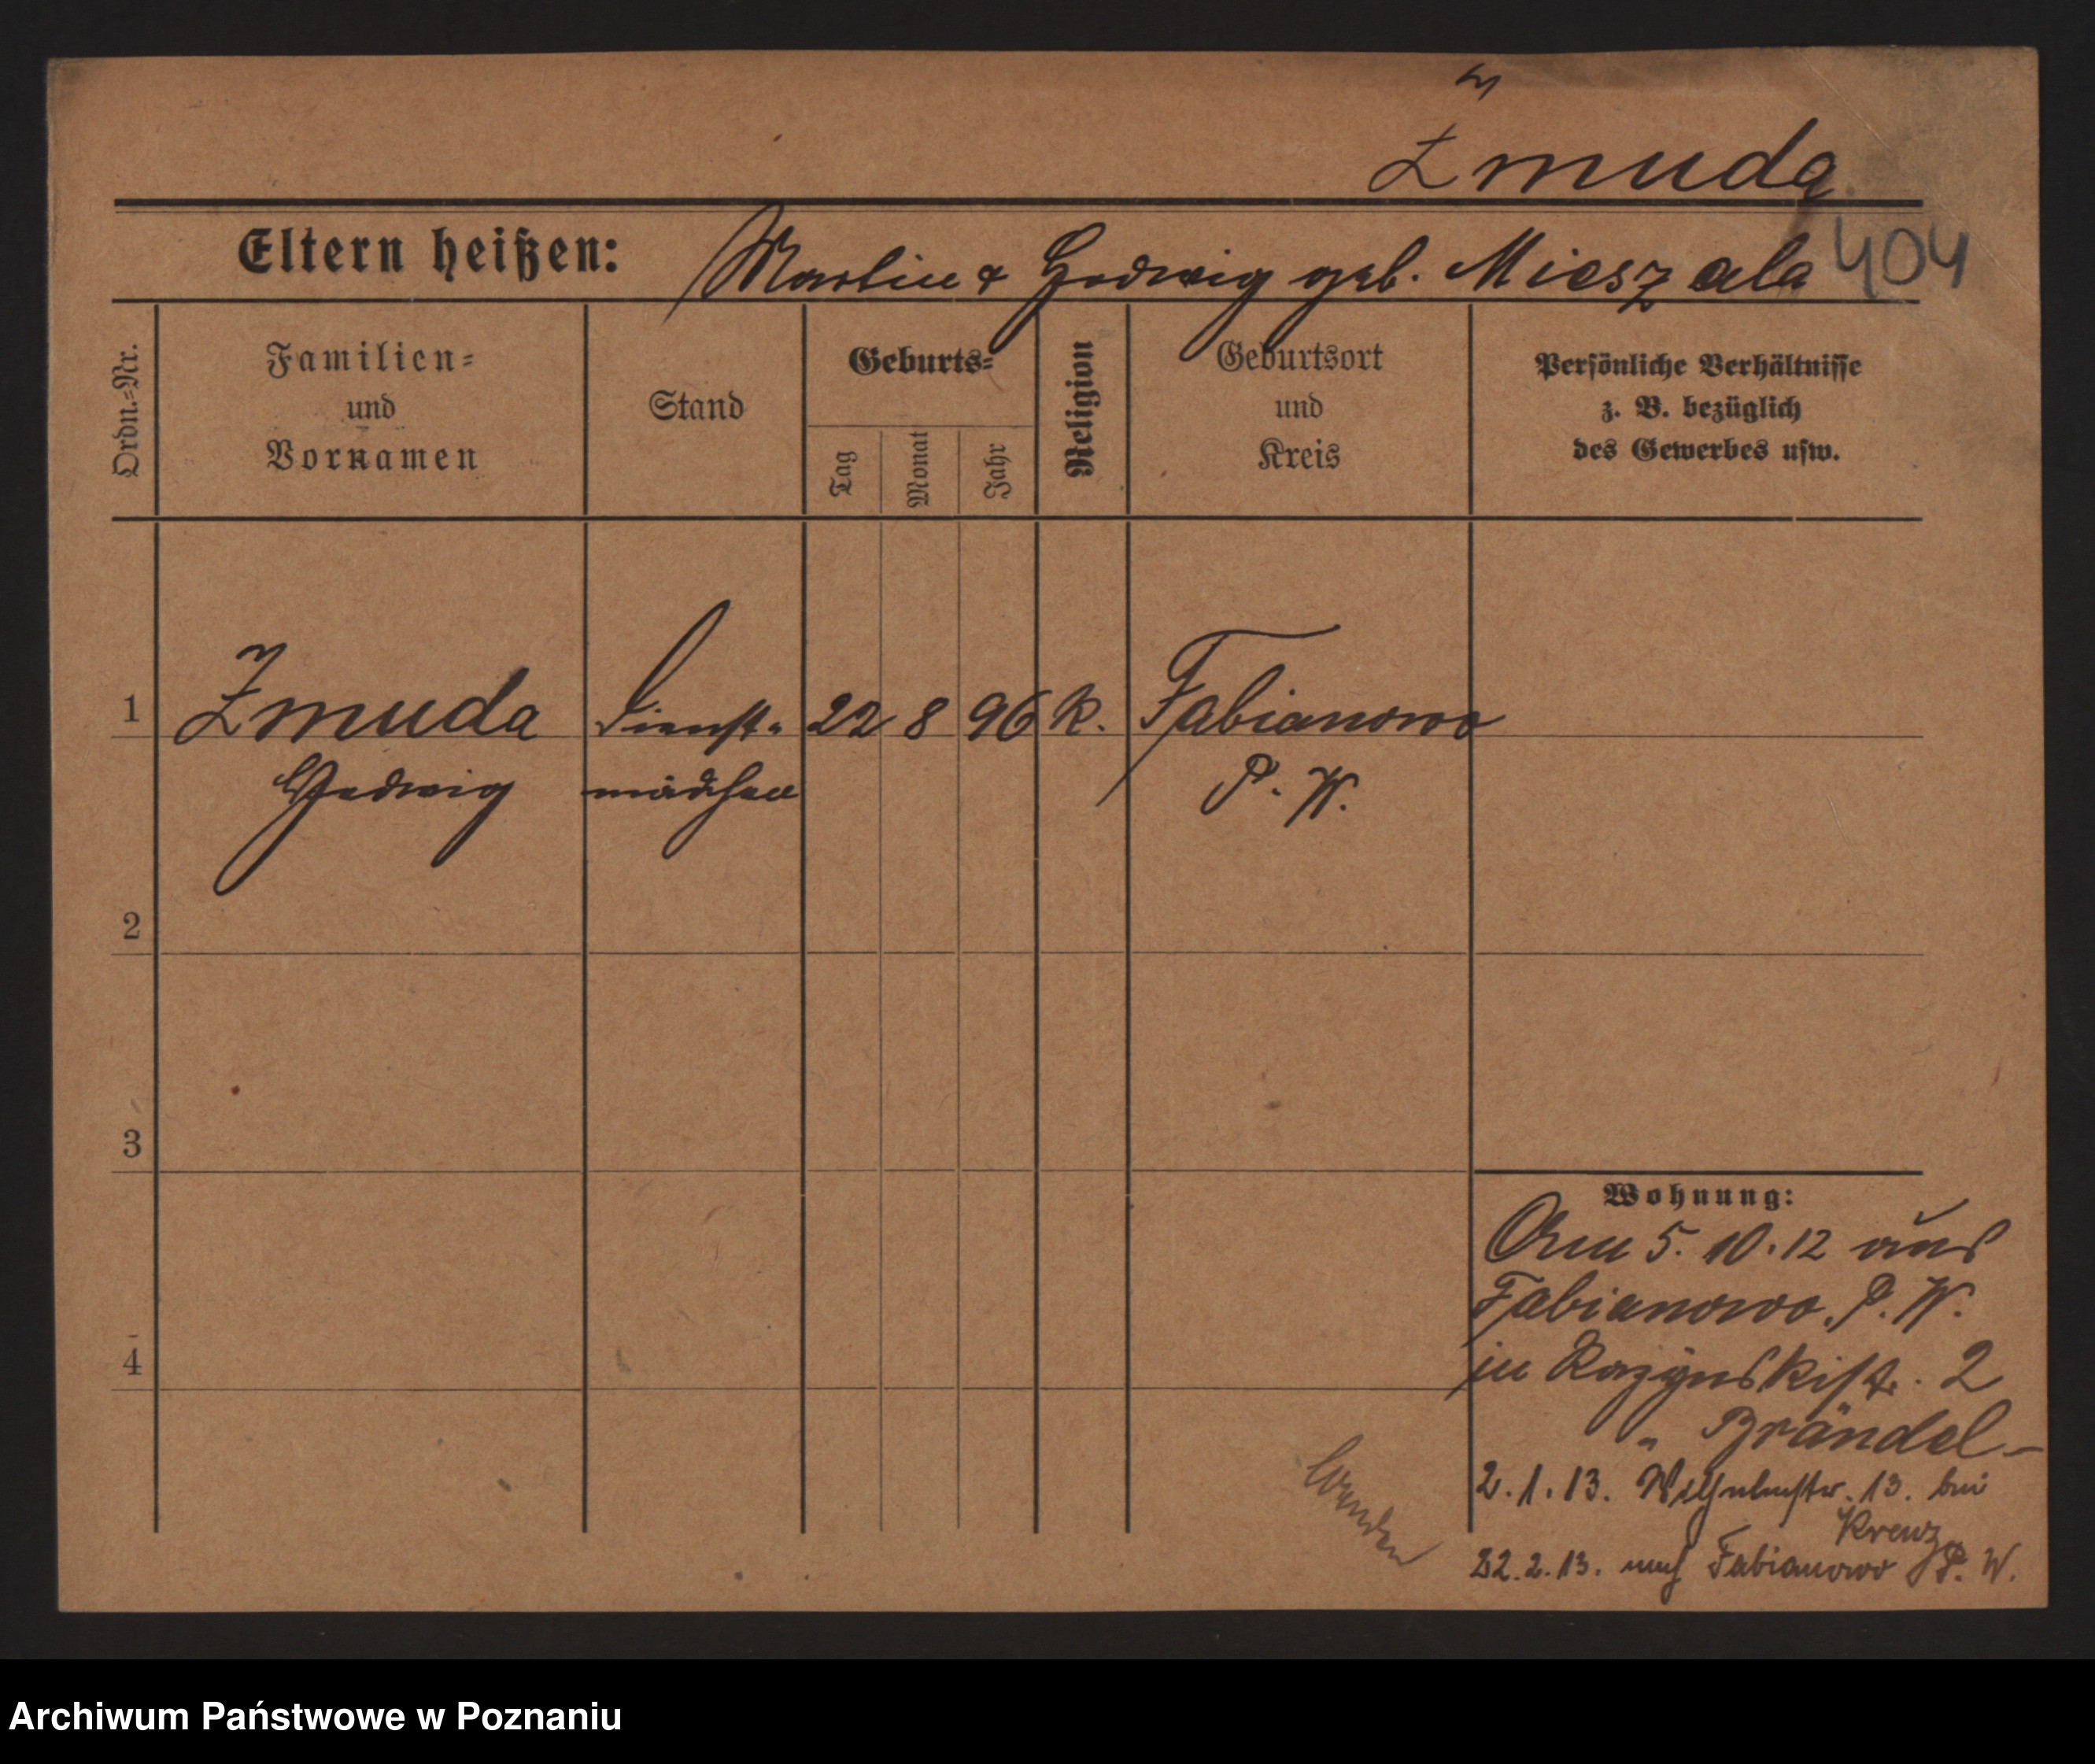 Zmuda
404
Eltern heißen: Martin & Hedwig geb. Mieszala
Ordn.-Nr.
Familien-
und
Vornamen
Stand
Geburts-
Tag
Monat
Jahr
Religion
Geburtsort
und
Kreis
Persönliche Verhältnisse
z. B. bezüglich
des Gewerbes usw.
1 Zmuda Dienst- 22 8 96 k. Fabianowo
Hedwig mädchen P. W.
2
3
4
Wohnung:
Am 5. 10. 12 aus
Fabianowo, P. W.
in Razynskistr. 2
" Brändel -
2. 1. 13. Wilhelmstr. 13. bei
Kreuz
22. 2. 13. nach Fabianowo P. W.
Wenden
Archiwum Państwowe w Poznaniu